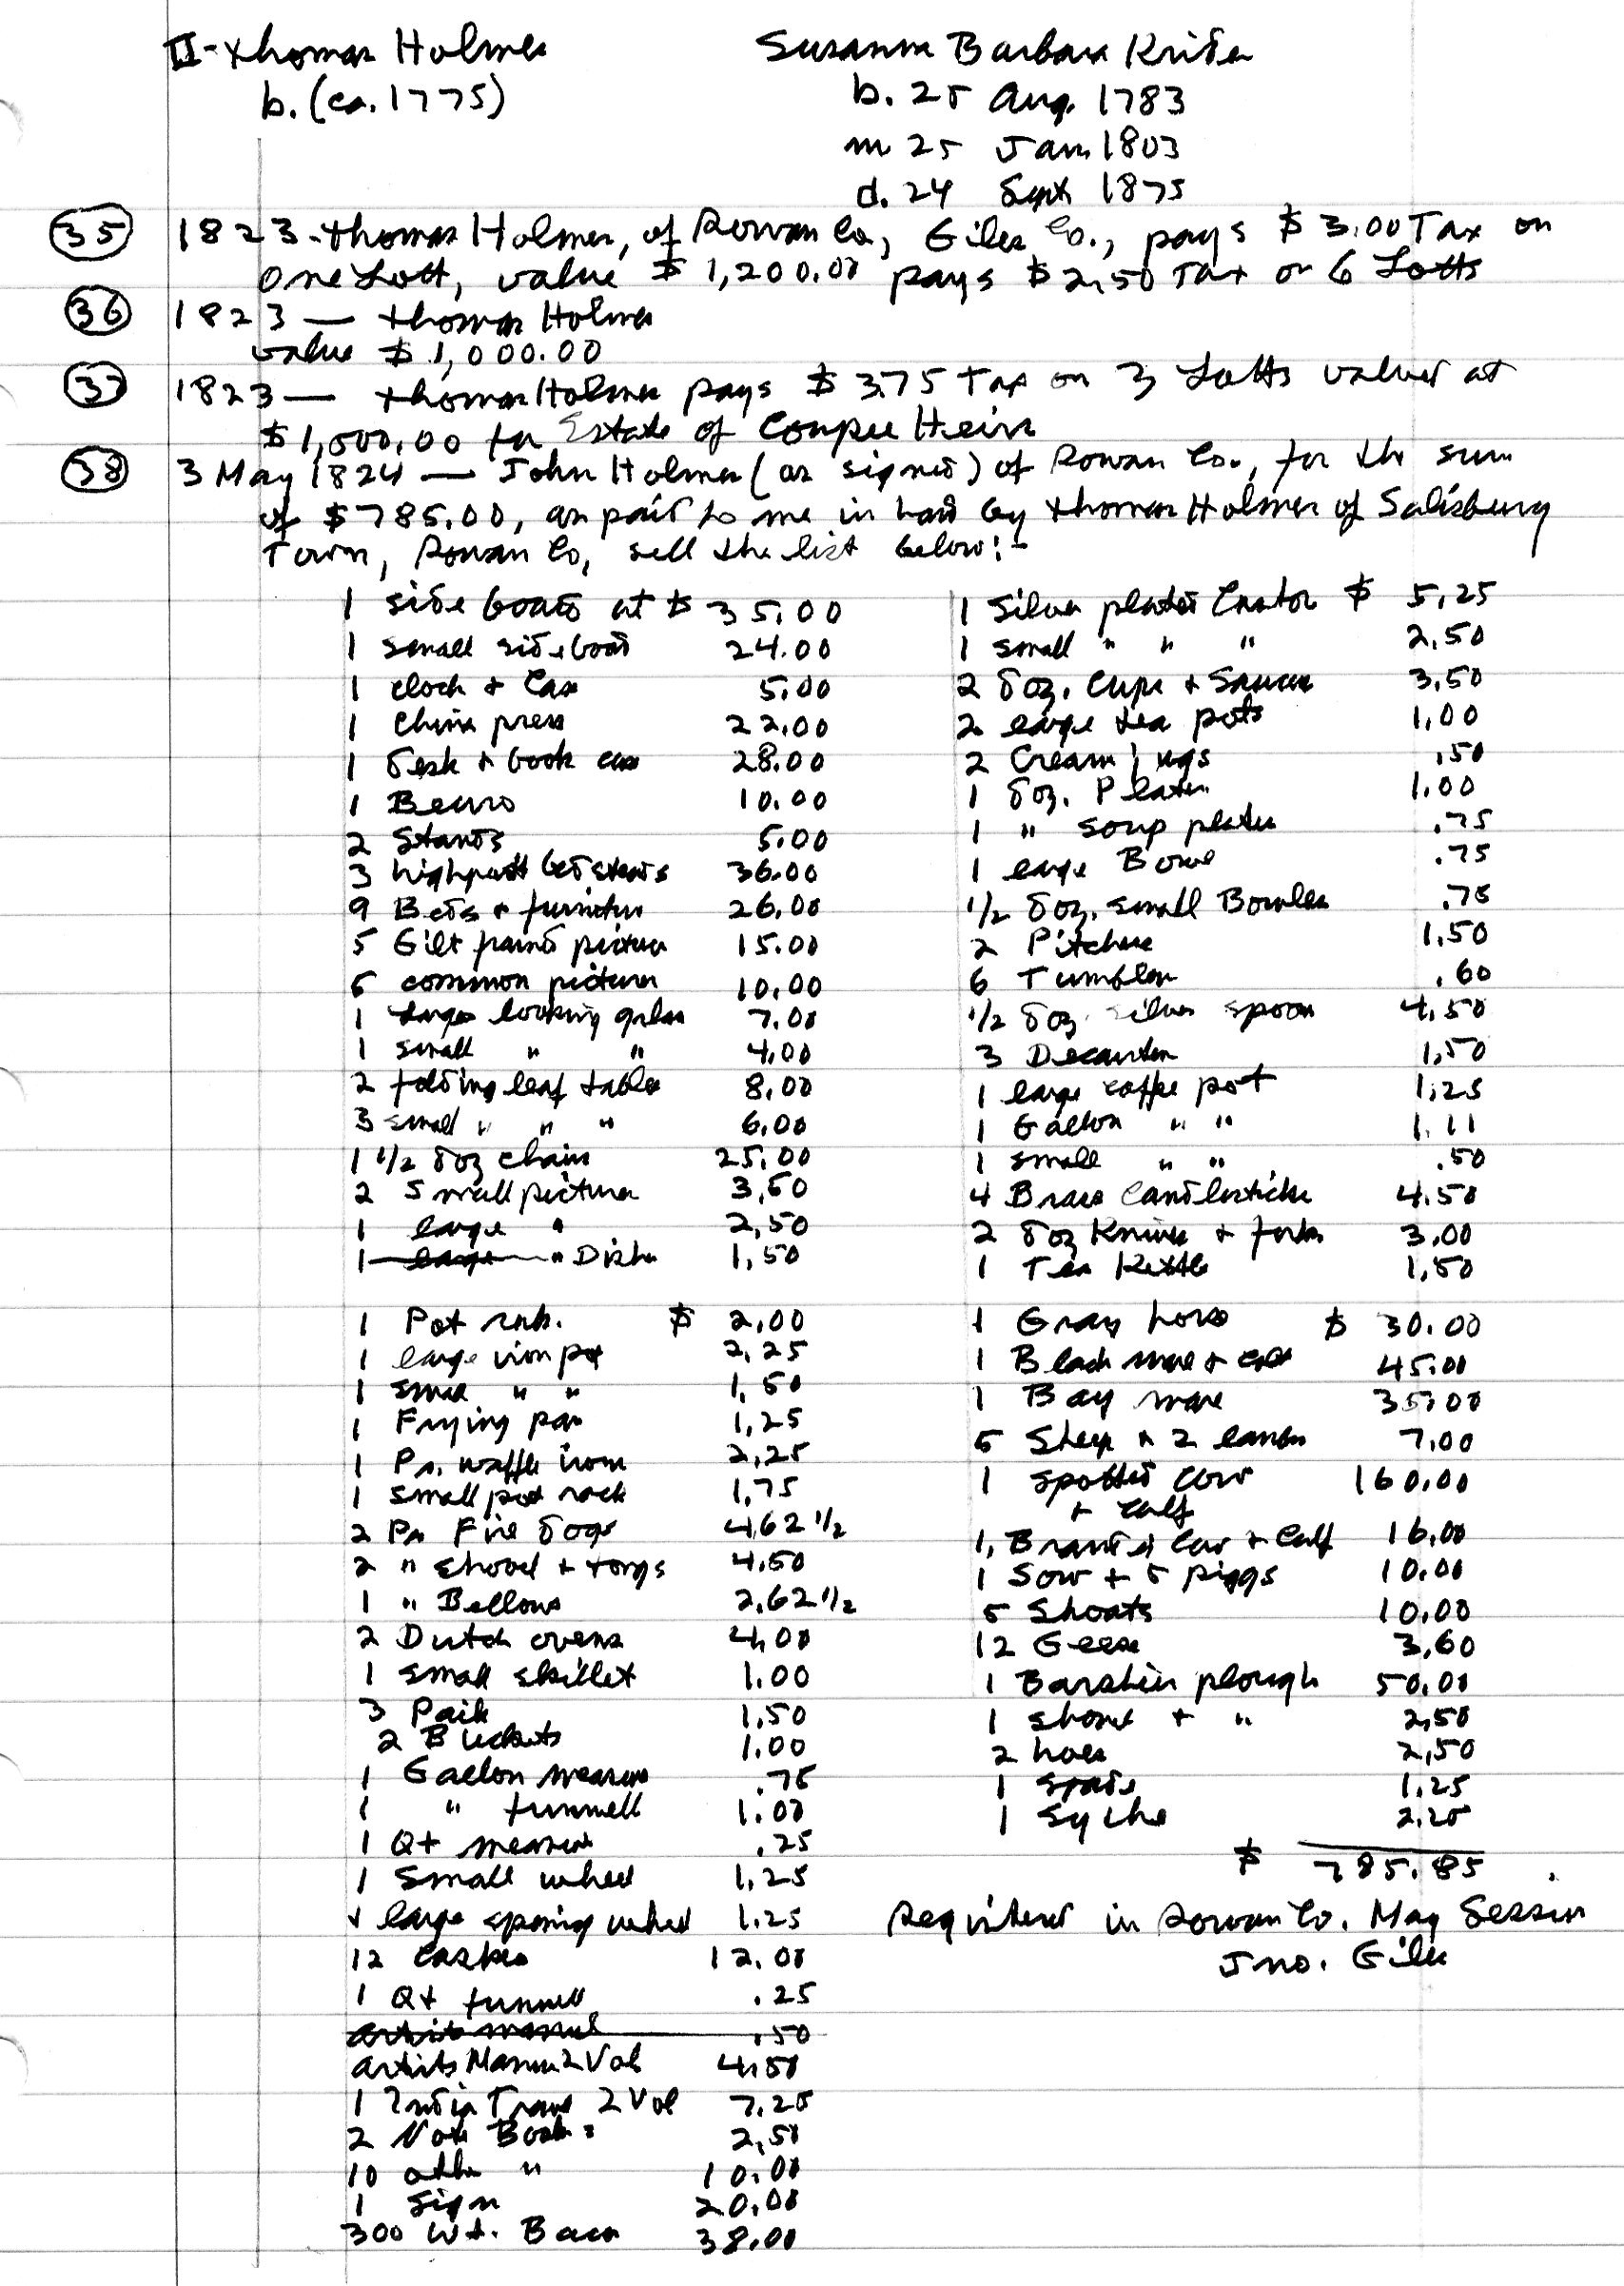 II - Thomas Holmes
b. (ca. 1775)
Susanna Barbara Krider
b. 25 Aug. 1783
m 25 Jan. 1803
d. 24 Sept 1875
(35) 1823 - Thomas Holmes, of Rowan Co., Giles Co., pays $3.00 Tax on
One Lott, value $1,200.00 pays $2.50 Tax on 6 Lotts
(36) 1823 — Thomas Holmes
value $1,000.00
(37) 1823 — Thomas Holmes pays $3.75 Tax on 3 Lotts valued at
$1,500.00 for Estate of Heirs
(38) 3 May 1824 — John Holmes (as signed) of Rowan Co., for the sum
of $785.00, as paid to me in hand by Thomas Holmes of Salisbury
Town, Rowan Co, sell the list below:-
1 side board at $ 35.00
1 small sideboard 24.00
1 clock & Case 5.00
1 China press 22.00
1 desk & book case 28.00
1 Beuro 10.00
2 Stands 5.00
3 highpost bedsteads 36.00
9 Beds & furniture 26.00
5 Gilt framd pictures 15.00
5 common pictures 10.00
1 Large looking glass 7.00
1 small " " 4.00
2 folding leaf tables 8.00
3 small " " " 6.00
1 1/2 doz chairs 25.00
2 Small pictures 3.50
1 large " 2.50
1 large " Dishe 1.50
1 Silver plated Castor $ 5.25
1 small " " " 2.50
2 doz. Cups & Saucers 3.50
2 large tea pots 1.00
2 Cream jugs .50
1 doz. Plates 1.00
1 " soup plates .75
1 large Bowl .75
1/2 doz. small Bowles .75
2 Pitchers 1.50
6 Tumblers .60
1/2 doz. silver spoons 4.50
3 Decanters 1.50
1 large coffee pot 1.25
1 Gallon " " 1.11
1 small " " .50
4 Brass Candlesticks 4.50
2 doz Knives & forks 3.00
1 Tea Kettle 1.50
1 Pot rack. $ 2.00
1 large iron pot 2.25
1 small " " 1.50
1 Frying pan 1.25
1 Pr. waffle irons 2.25
1 small pot rack 1.75
2 Pr Fire dogs 4.62 1/2
2 " shovel & tongs 4.50
1 " Bellows 2.62 1/2
2 Dutch ovens 4.00
1 small skillet 1.00
3 Pails 1.50
2 Buckets 1.00
1 Gallon measure .75
1 " funnell 1.00
1 Qt measure .25
1 Small wheel 1.25
1 large spining wheel 1.25
12 Caskes 12.00
1 Qt funnell .25
artists manuel .50
artists Manu 2 Vol 4.50
1 India Trave 2 Vol 7.25
2 Note Books 2.50
10 other " 10.00
1 Sign 20.00
300 Wt. Bacon 38.00
1 Gray horse $ 30.00
1 Black mare & colt 45.00
1 Bay mare 35.00
5 Sheep & 2 lambs 7.00
1 spotted cow 160.00
& calf
1, Brand d Cow & Calf 16.00
1 Sow & 5 piggs 10.00
5 Shoats 10.00
12 Geese 3.60
1 Barshier plough 50.00
1 shovel & " 2.50
2 hoes 2.50
1 spade 1.25
1 Sythe 2.25
$ 785.85
Registered in Rowan Co. May Session
Jno. Giles